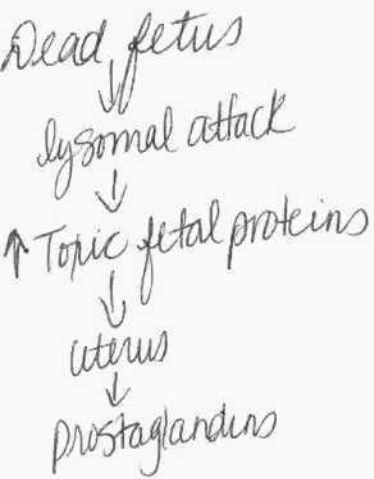 Dead fetus
↓
lysomal attack
↓
↑ Toxic fetal proteins
↓
uterus
↓
prostaglandins